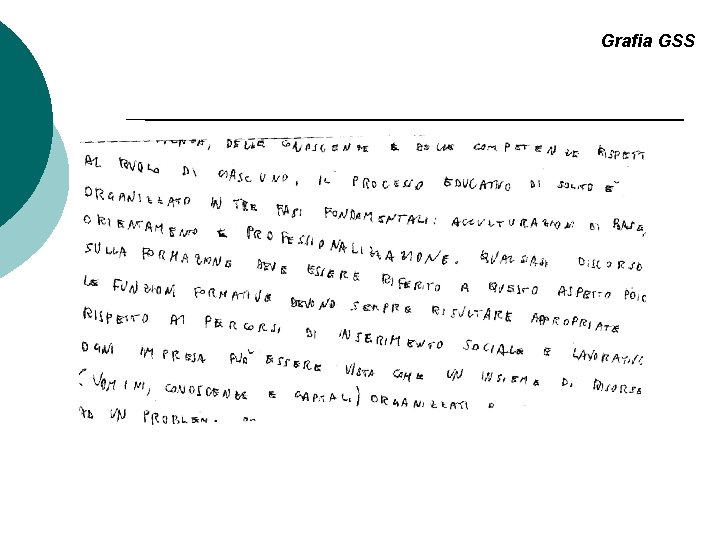 Grafia GSS
DELLE CONOSCENZE E DELLE COMPETENZE RISPETT
AL RUOLO DI CIASCUNO. IL PROCESSO EDUCATIVO DI SOLITO E'
ORGANIZZATO IN TRE FASI FONDAMENTALI: ACCULTURAZIONE DI BASE,
ORIENTAMENTO E PROFESSIONALIZZAZIONE. QUALSIASI DISCORSO
SULLA FORMAZIONE DEVE ESSERE RIFERITO A QUESTO ASPETTO POIC
LE FUNZIONI FORMATIVE DEVONO SEMPRE RISULTARE APPROPRIATE
RISPETTO AI PERCORSI DI INSERIMENTO SOCIALE E LAVORATIVO
OGNI IMPRESA PUO' ESSERE VISTA COME UN INSIEME DI RISORSE
(UOMINI, CONOSCENZE E CAPITALI) ORGANIZZATI
AD UN PROBLEM.